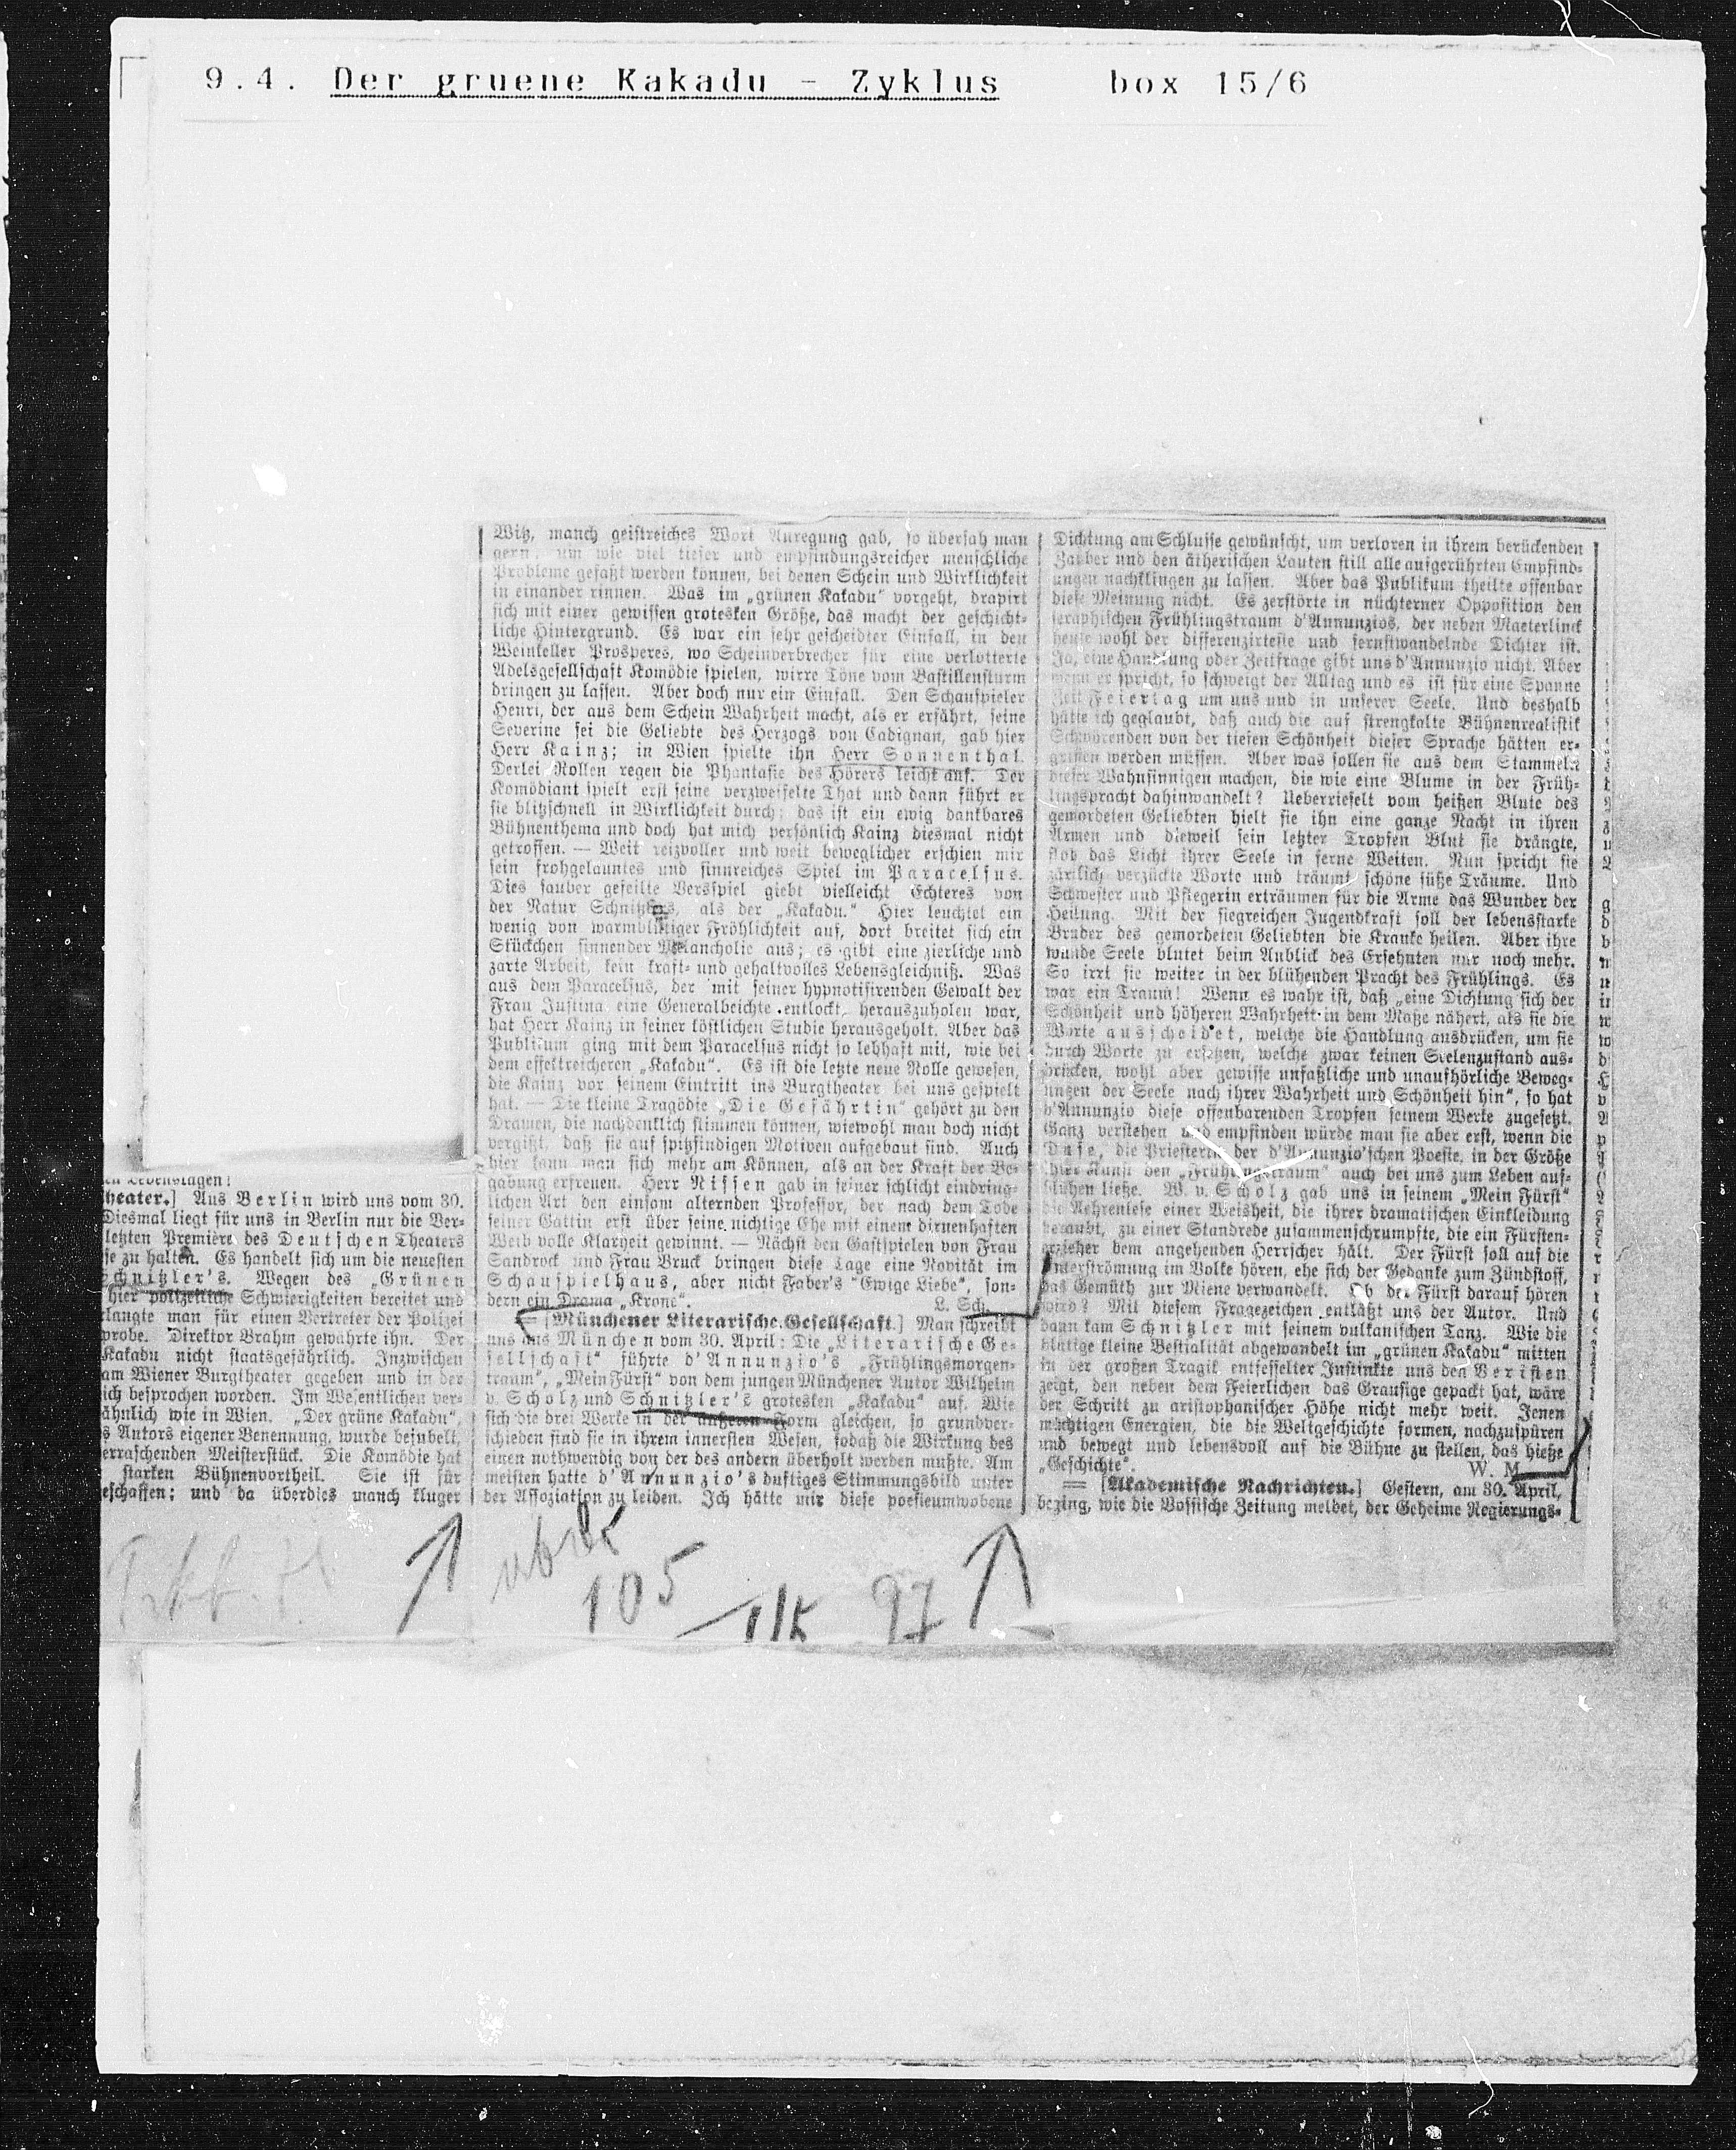 9.4. Der gruene Kakadu - Zyklus box 15/6
heater.] Aus Berlin wird uns vom 30.
Diesmal liegt für uns in Berlin nur die Ver-
letzten Première des Deutschen Theaters
se zu halten. Es handelt sich um die neuesten
chnitzler's. Wegen des „Grünen
hier polizeiliche Schwierigkeiten bereitet und
langte man für einen Vertreter der Polizei
probe. Direktor Brahm gewährte ihn. Der
Kakadu nicht staatsgefährlich. Inzwischen
am Wiener Burgtheater gegeben und in der
ich besprochen worden. Im Wesentlichen ver-
ähnlich wie in Wien. „Der grüne Kakadu",
s Autors eigener Benennung, wurde bejubelt,
erraschenden Meisterstück. Die Komödie hat
starken Bühnenvortheil. Sie ist für
eschaffen; und da überdies manch kluger
Witz, manch geistreiches Wort Anregung gab, so übersah man
gern, um wie viel tiefer und empfindungsreicher menschliche
Probleme gefaßt werden können, bei denen Schein und Wirklichkeit
in einander rinnen. Was im „grünen Kakadu" vorgeht, drapirt
sich mit einer gewissen grotesken Größe, das macht der geschicht-
liche Hintergrund. Es war ein sehr gescheidter Einfall, in den
Weinkeller Prosperes, wo Scheinverbrecher für eine verlotterte
Adelsgesellschaft Komödie spielen, wirre Töne vom Bastillensturm
dringen zu lassen. Aber doch nur ein Einfall. Den Schauspieler
Henri, der aus dem Schein Wahrheit macht, als er erfährt, seine
Severine sei die Geliebte des Herzogs von Cadignan, gab hier
Herr Kainz; in Wien spielte ihn Herr Sonnenthal.
Derlei Rollen regen die Phantasie des Hörers leicht auf. Der
Komödiant spielt erst seine verzweifelte That und dann führt er
sie blitzschnell in Wirklichkeit durch; das ist ein ewig dankbares
Bühnenthema und doch hat mich persönlich Kainz diesmal nicht
getroffen. — Weit reizvoller und weit beweglicher erschien mir
sein frohgelauntes und sinnreiches Spiel im Paracelsus.
Dies sauber gefeilte Versspiel giebt vielleicht Echteres von
der Natur Schnitzlers, als der „Kakadu." Hier leuchtet ein
wenig von warmblütiger Fröhlichkeit auf, dort breitet sich ein
Stückchen sinnender Melancholie aus; es gibt eine zierliche und
zarte Arbeit, kein kraft- und gehaltvolles Lebensgleichniß. Was
aus dem Paracelsus, der mit seiner hypnotisirenden Gewalt der
Frau Justina eine Generalbeichte entlockt, herauszuholen war,
hat Herr Kainz in seiner köstlichen Studie herausgeholt. Aber das
Publikum ging mit dem Paracelsus nicht so lebhaft mit, wie bei
dem effektreicheren „Kakadu". Es ist die letzte neue Rolle gewesen,
die Kainz vor seinem Eintritt ins Burgtheater bei uns gespielt
hat. — Die kleine Tragödie „Die Gefährtin" gehört zu den
Dramen, die nachdenklich stimmen können, wiewohl man doch nicht
vergißt, daß sie auf spitzfindigen Motiven aufgebaut sind. Auch
hier kann man sich mehr am Können, als an der Kraft der Be-
gabung erfreuen. Herr Nissen gab in seiner schlicht eindring-
lichen Art den einsam alternden Professor, der nach dem Tode
seiner Gattin erst über seine nichtige Ehe mit einem dirnenhaften
Weib volle Klarheit gewinnt. — Nächst den Gastspielen von Frau
Sandrock und Frau Bruck bringen diese Tage eine Novität im
Schauspielhaus, aber nicht Faber's "Ewige Liebe", son-
dern ein Drama „Krone". L. Sch.
= [Münchener Literarische Gesellschaft.] Man schreibt
uns aus München vom 30. April: Die „Literarische Ge-
sellschaft" führte d'Annunzio's „Frühlingsmorgen-
traum", „Mein Fürst" von dem jungen Münchener Autor Wilhelm
v. Scholz und Schnitzler's grotesken „Kakadu" auf. Wie
sich die drei Werke in der äußeren Form gleichen, so grundver-
schieden sind sie in ihrem innersten Wesen, sodaß die Wirkung des
einen nothwendig von der des andern überholt werden mußte. Am
meisten hatte d'Annunzio's duftiges Stimmungsbild unter
der Assoziation zu leiden. Ich hätte mir diese poesieumwobene
Dichtung am Schlusse gewünscht, um verloren in ihrem berückenden
Zauber und den ätherischen Lauten still alle aufgerührten Empfind-
ungen nachklingen zu lassen. Aber das Publikum theilte offenbar
diese Meinung nicht. Es zerstörte in nüchterner Opposition den
seraphischen Frühlingstraum d'Annunzios, der neben Maeterlinck
heute wohl der differenzirteste und fernstwandelnde Dichter ist.
Ja, eine Handlung oder Zeitfrage gibt uns d'Annunzio nicht. Aber
wenn er spricht, so schweigt der Alltag und es ist für eine Spanne
Zeit Feiertag um uns und in unserer Seele. Und deshalb
hätte ich geglaubt, daß auch die auf strengkalte Bühnenrealistik
Schwörenden von der tiefen Schönheit dieser Sprache hätten er-
griffen werden müssen. Aber was sollen sie aus dem Stammeln
dieser Wahnsinnigen machen, die wie eine Blume in der Früh-
lingspracht dahinwandelt? Ueberrieselt vom heißen Blute des
gemordeten Geliebten hielt sie ihn eine ganze Nacht in ihren
Armen und dieweil sein letzter Tropfen Blut sie drängte,
stob das Licht ihrer Seele in ferne Weiten. Nun spricht sie
zärtlich verzückte Worte und träumt schöne süße Träume. Und
Schwester und Pflegerin erträumen für die Arme das Wunder der
Heilung. Mit der siegreichen Jugendkraft soll der lebensstarke
Bruder des gemordeten Geliebten die Kranke heilen. Aber ihre
wunde Seele blutet beim Anblick des Ersehnten nur noch mehr.
So irrt sie weiter in der blühenden Pracht des Frühlings. Es
war ein Traum! Wenn es wahr ist, daß „eine Dichtung sich der
Schönheit und höheren Wahrheit in dem Maße nähert, als sie die
Worte ausscheidet, welche die Handlung ausdrücken, um sie
durch Worte zu ersetzen, welche zwar keinen Seelenzustand aus-
drücken, wohl aber gewisse unfaßliche und unaufhörliche Beweg-
ungen der Seele nach ihrer Wahrheit und Schönheit hin", so hat
d'Annunzio diese offenbarenden Tropfen seinem Werke zugesetzt.
Ganz verstehen und empfinden würde man sie aber erst, wenn die
Duse, die Priesterin der d'Annunzio'schen Poesie, in der Größe
ihrer Kunst den „Frühlingstraum" auch bei uns zum Leben auf-
blühen ließe. W. v. Scholz gab uns in seinem „Mein Fürst"
die Aehrenlese einer Weisheit, die ihrer dramatischen Einkleidung
beraubt, zu einer Standrede zusammenschrumpfte, die ein Fürsten-
erzieher dem angehenden Herrscher hält. Der Fürst soll auf die
Unterströmung im Volke hören, ehe sich der Gedanke zum Zündstoff,
das Gemüth zur Miene verwandelt. Ob der Fürst darauf hören
wird? Mit diesem Fragezeichen entläßt uns der Autor. Und
dann kam Schnitzler mit seinem vulkanischen Tanz. Wie die
blutige kleine Bestialität abgewandelt im „grünen Kakadu" mitten
in der großen Tragik entfesselter Instinkte uns den Veristen
zeigt, den neben dem Feierlichen das Grausige gepackt hat, wäre
der Schritt zu aristophanischer Höhe nicht mehr weit. Jenen
mächtigen Energien, die die Weltgeschichte formen, nachzuspüren
und bewegt und lebensvoll auf die Bühne zu stellen, das hieße
„Geschichte". W. M.
= [Akademische Nachrichten.] Gestern, am 30. April,
beging, wie die Vossische Zeitung meldet, der Geheime Regierungs-
105
97